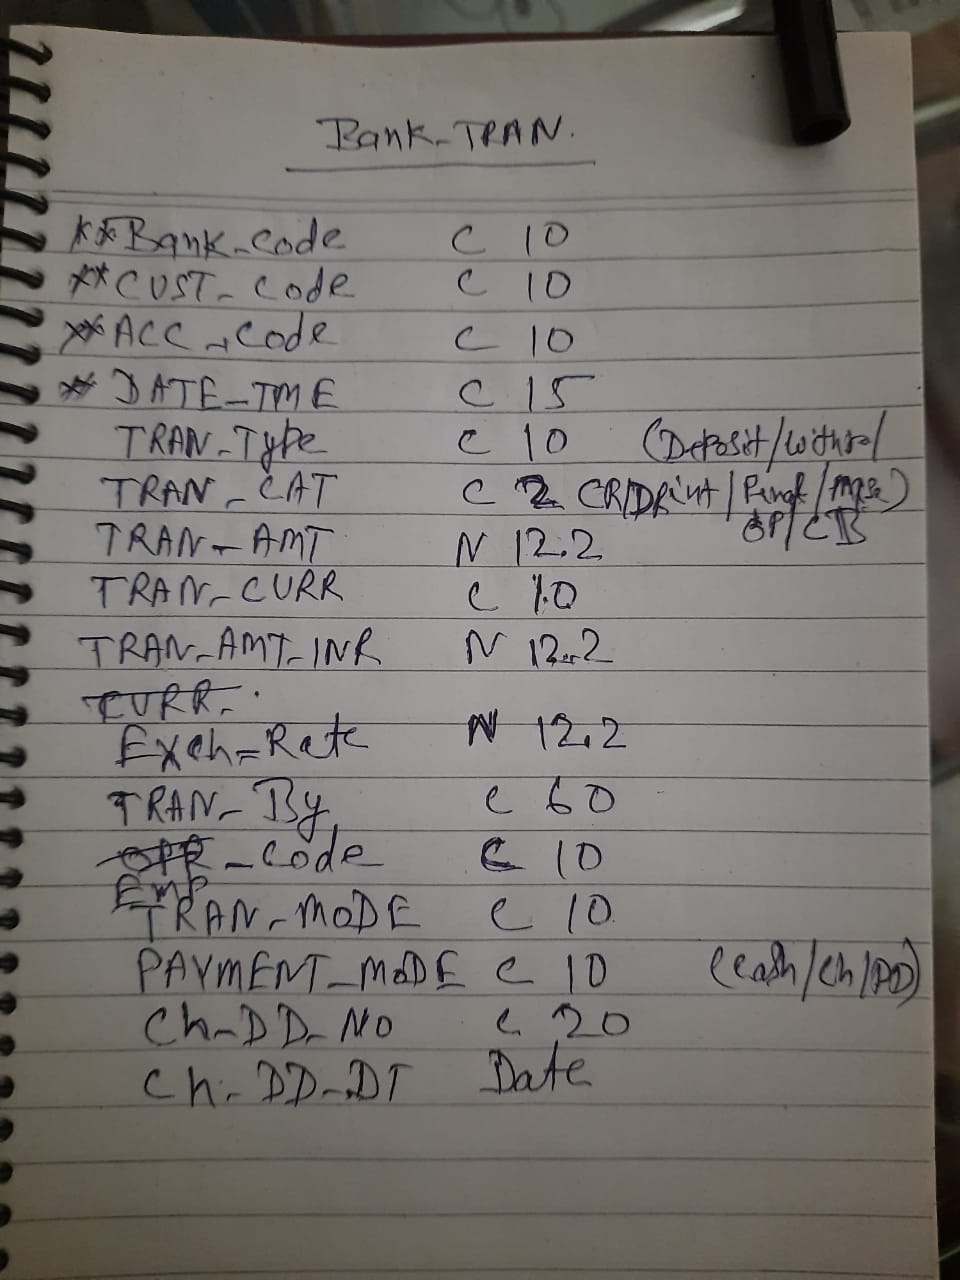 Bank-TRAN.
**Bank-Code C 10
**CUST-Code C 10
**ACC-Code C 10
* DATE-TME C 15
TRAN-Type C 10 (Deposit/
TRAN-CAT C 2 CR/DR
OP/CB
TRAN-AMT N 12.2
TRAN-CURR C 10
TRAN-AMT-INR N 12.2
CURR-
Exch-Rate N 12.2
TRAN-By C 60
OPR-Code C 10
Emp
TRAN-MODE C 10
PAYMENT-MODE C 10 (Cash/Ch/DD)
Ch-DD-NO C 20
Ch-DD-DT Date